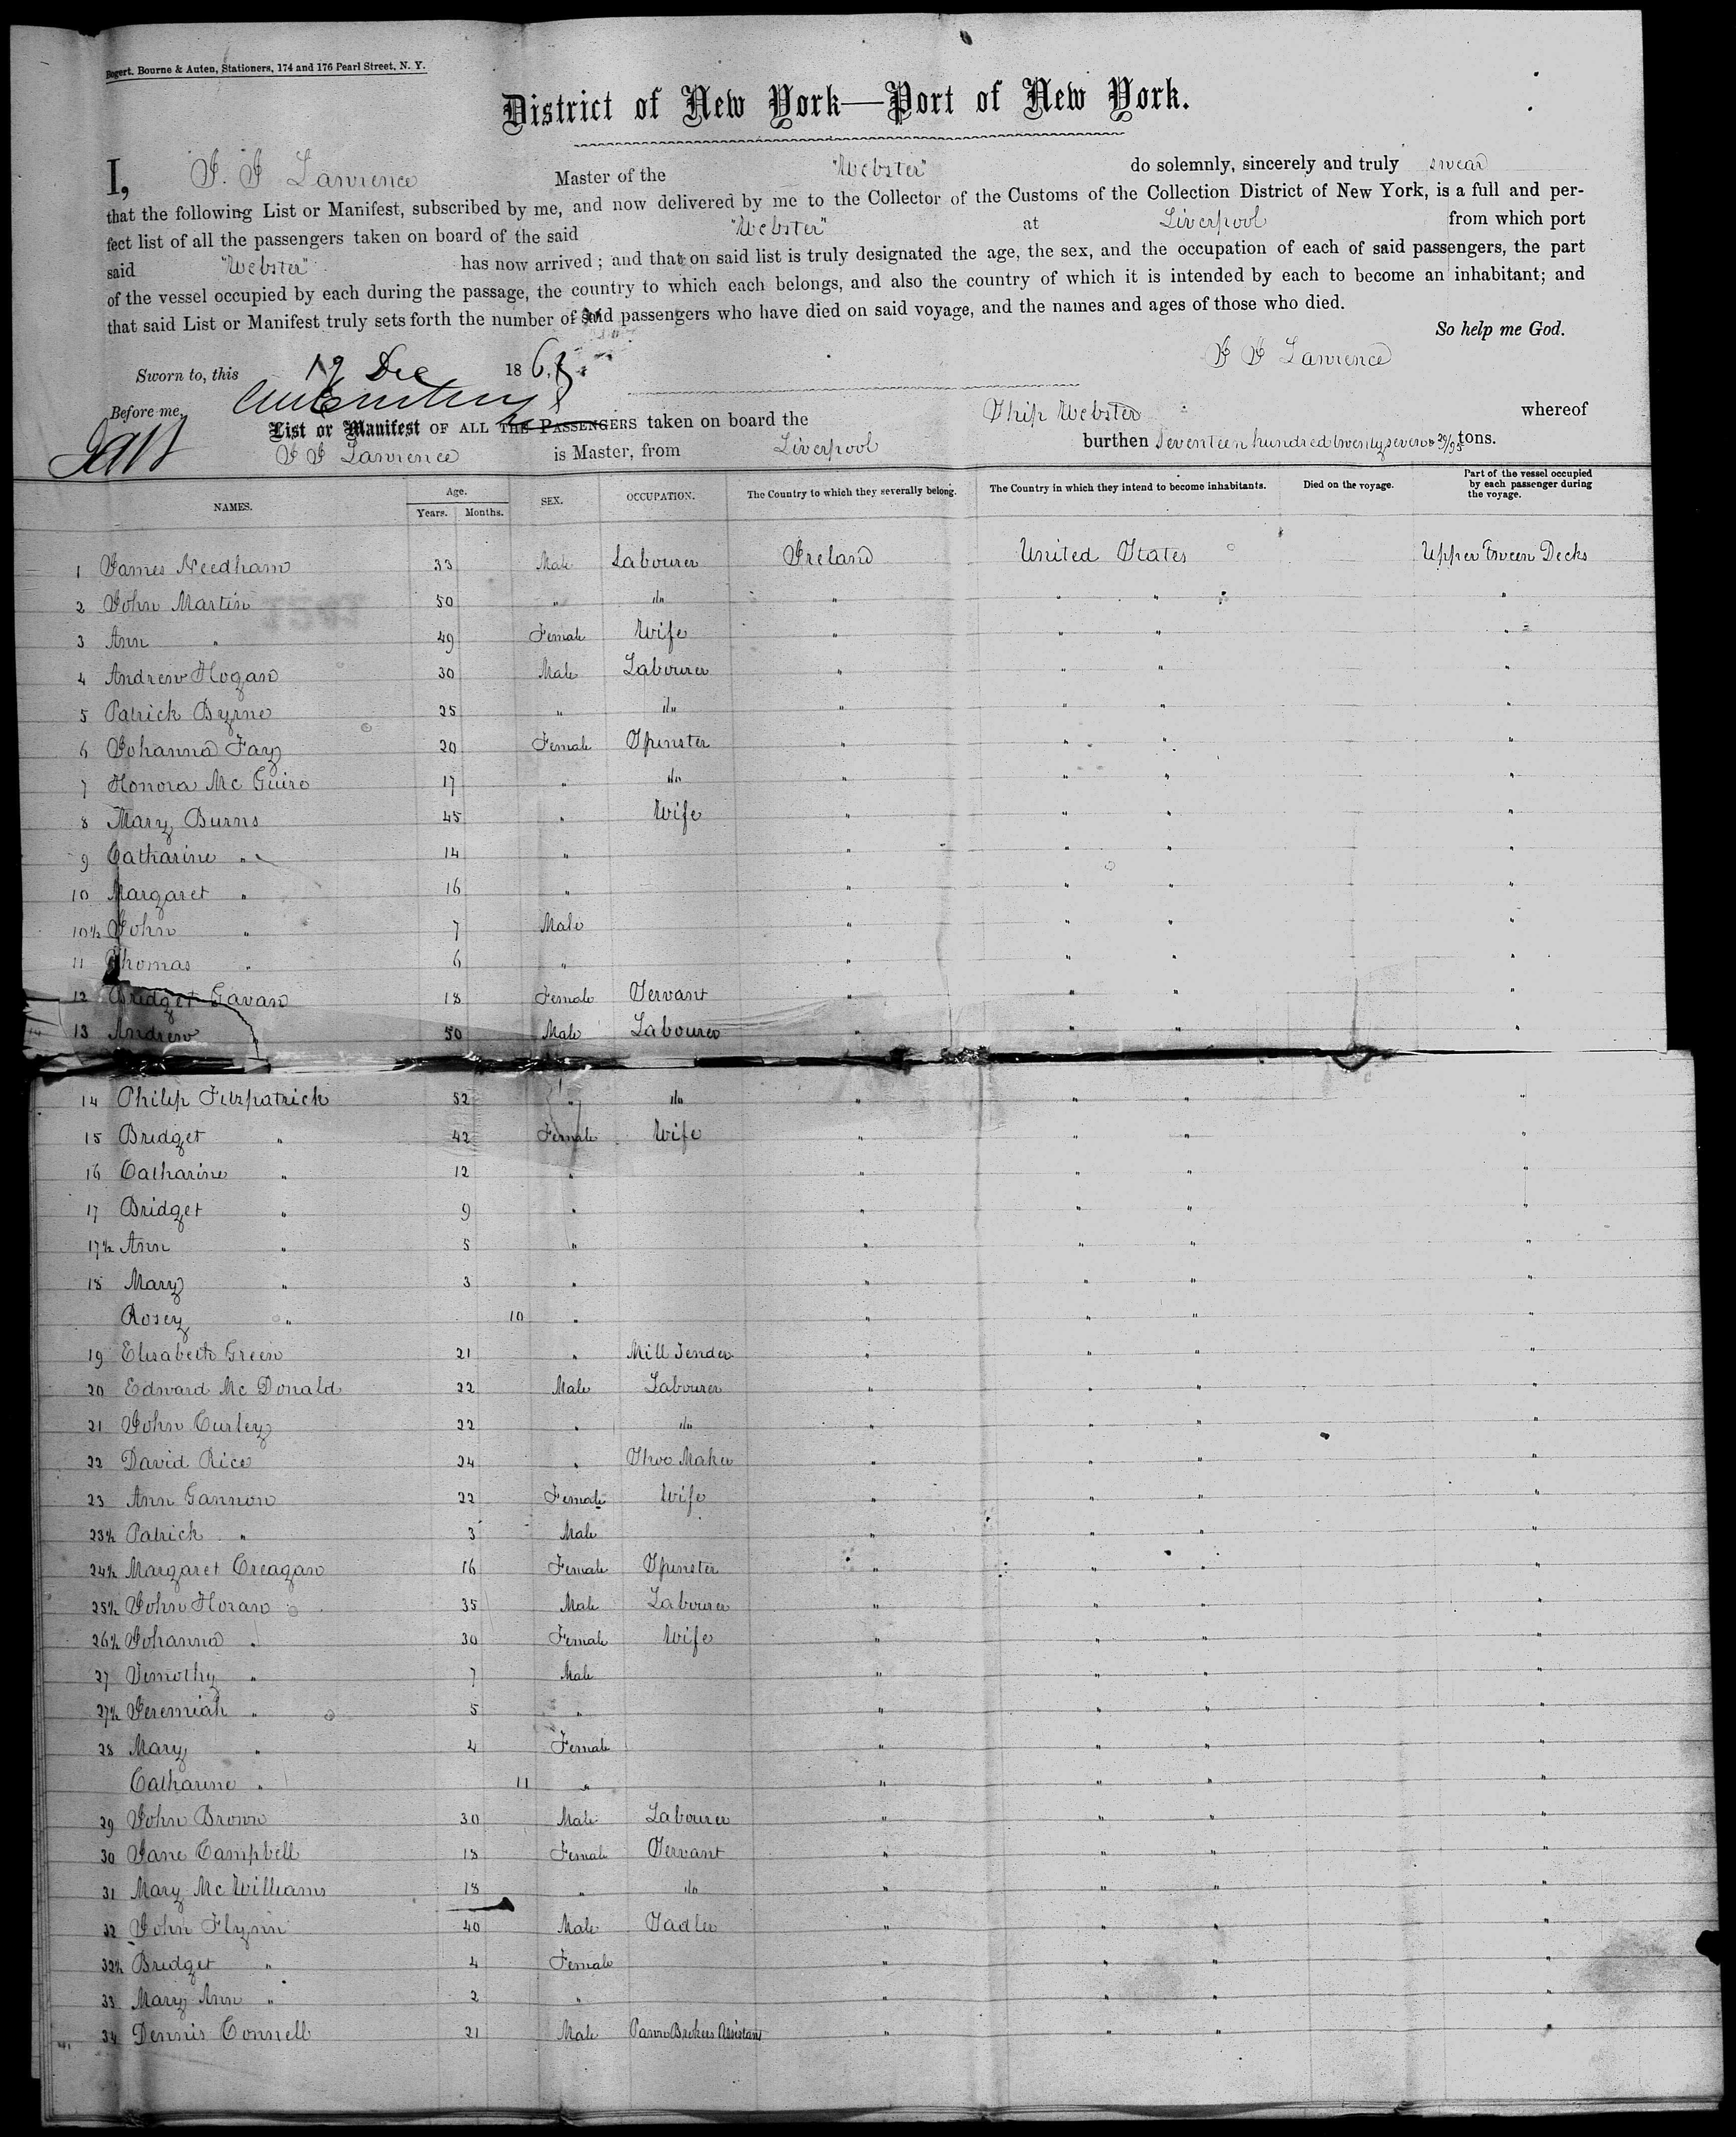 Bogert, Bourne & Auten, Stationers, 174 and 176 Pearl Street, N. Y.
District of New York—Port of New York.
I, J. J. Lawrence Master of the "Webster" do solemnly, sincerely and truly swear
that the following List or Manifest, subscribed by me, and now delivered by me to the Collector of the Customs of the Collection District of New York, is a full and per-
fect list of all the passengers taken on board of the said "Webster" at Liverpool from which port
said "Webster" has now arrived; and that on said list is truly designated the age, the sex, and the occupation of each of said passengers, the part
of the vessel occupied by each during the passage, the country to which each belongs, and also the country of which it is intended by each to become an inhabitant; and
that said List or Manifest truly sets forth the number of said passengers who have died on said voyage, and the names and ages of those who died.
So help me God.
J J Lawrence
Sworn to, this 19 Dec 186
Before me,
List or Manifest OF ALL THE PASSENGERS taken on board the Ship Webster whereof
J J Lawrence is Master, from Liverpool burthen Seventeen hundred twenty seven & 39/95 tons.
NAMES. Age. Years. Months. SEX. OCCUPATION. The Country to which they severally belong. The Country in which they intend to become inhabitants. Died on the voyage. Part of the vessel occupied by each passenger during the voyage.
1 James Needham 33 Male Labourer Ireland United States Upper Tween Decks
2 John Martin 50 " do " " " "
3 Ann " 49 Female Wife " " " "
4 Andrew Hogan 30 Male Labourer " " " "
5 Patrick Byrne 25 " do " " " "
6 Johanna Fay 20 Female Spinster " " " "
7 Honora Mc Guire 17 " do " " " "
8 Mary Burns 45 " Wife " " " "
9 Catharine " 14 " " " " "
10 Margaret " 16 " " " " "
10½ John " 7 Male " " " "
11 Thomas " 6 " " " " "
12 Bridget Gavan 18 Female Servant " " " "
13 Andrew " 50 Male Labourer " " " "
14 Philip Fitzpatrick 52 " do " " " "
15 Bridget " 42 Female Wife " " " "
16 Catharine " 12 " " " " "
17 Bridget " 9 " " " " "
17½ Ann " 5 " " " " "
18 Mary " 3 " " " " "
Rosey " 10 " " " " "
19 Elisabeth Green 21 " Mill Tender " " " "
20 Edward Mc Donald 22 Male Labourer " " " "
21 John Curley 22 " do " " " "
22 David Rice 24 " Shoe Maker " " " "
23 Ann Gannon 22 Female Wife " " " "
23½ Patrick " 3 Male " " " "
24½ Margaret Creagan 16 Female Spinster " " " "
25½ John Horan 35 Male Labourer " " " "
26½ Johanna " 30 Female Wife " " " "
27 Timothy " 7 Male " " " "
27½ Jeremiah " 5 " " " " "
28 Mary " 4 Female " " " "
Catharine " 11 " " " " "
29 John Brown 30 Male Labourer " " " "
30 Jane Campbell 18 Female Servant " " " "
31 Mary Mc Williams 18 " do " " " "
32 John Flynn 40 Male Sadler " " " "
32½ Bridget " 4 Female " " " "
33 Mary Ann " 2 " " " " "
34 Dennis Connell 21 Male Pawn Brokers Assistant " " " "